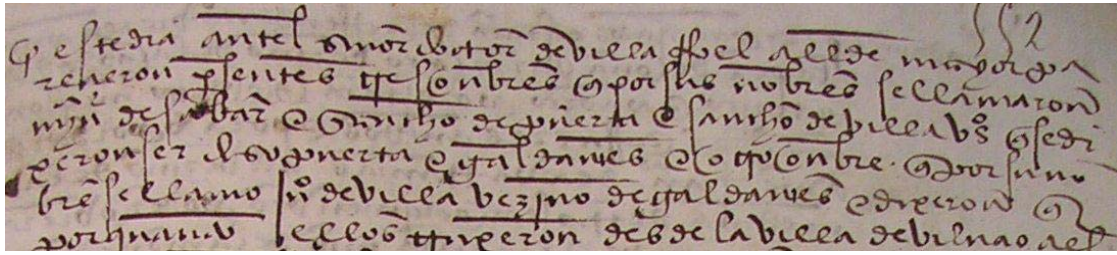 este dia antel señor dotor de villa ffvel allde mayor pa
reçieron psentes tres onbres q por sus nobres se llamaron
myn de sobar e sancho de puerta e sancho de villa vos q se di
xeron ser de so puerta e galdames e otro onbre q por su no
bre se llamo juo de villa vezino de galdames e dixeron q
por quanto ellos truxeron desde la villa de vilvao a el